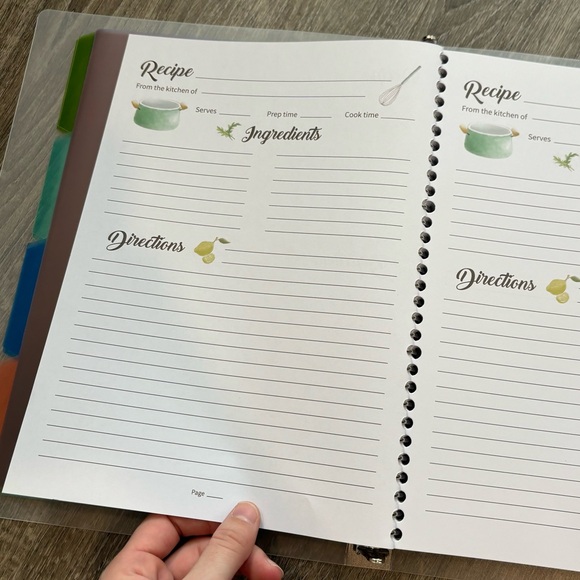 Recipe
From the kitchen of
Serves Prep time Cook time
Ingredients
Directions
Page
Recipe
From the kitchen of
Serves
Directions